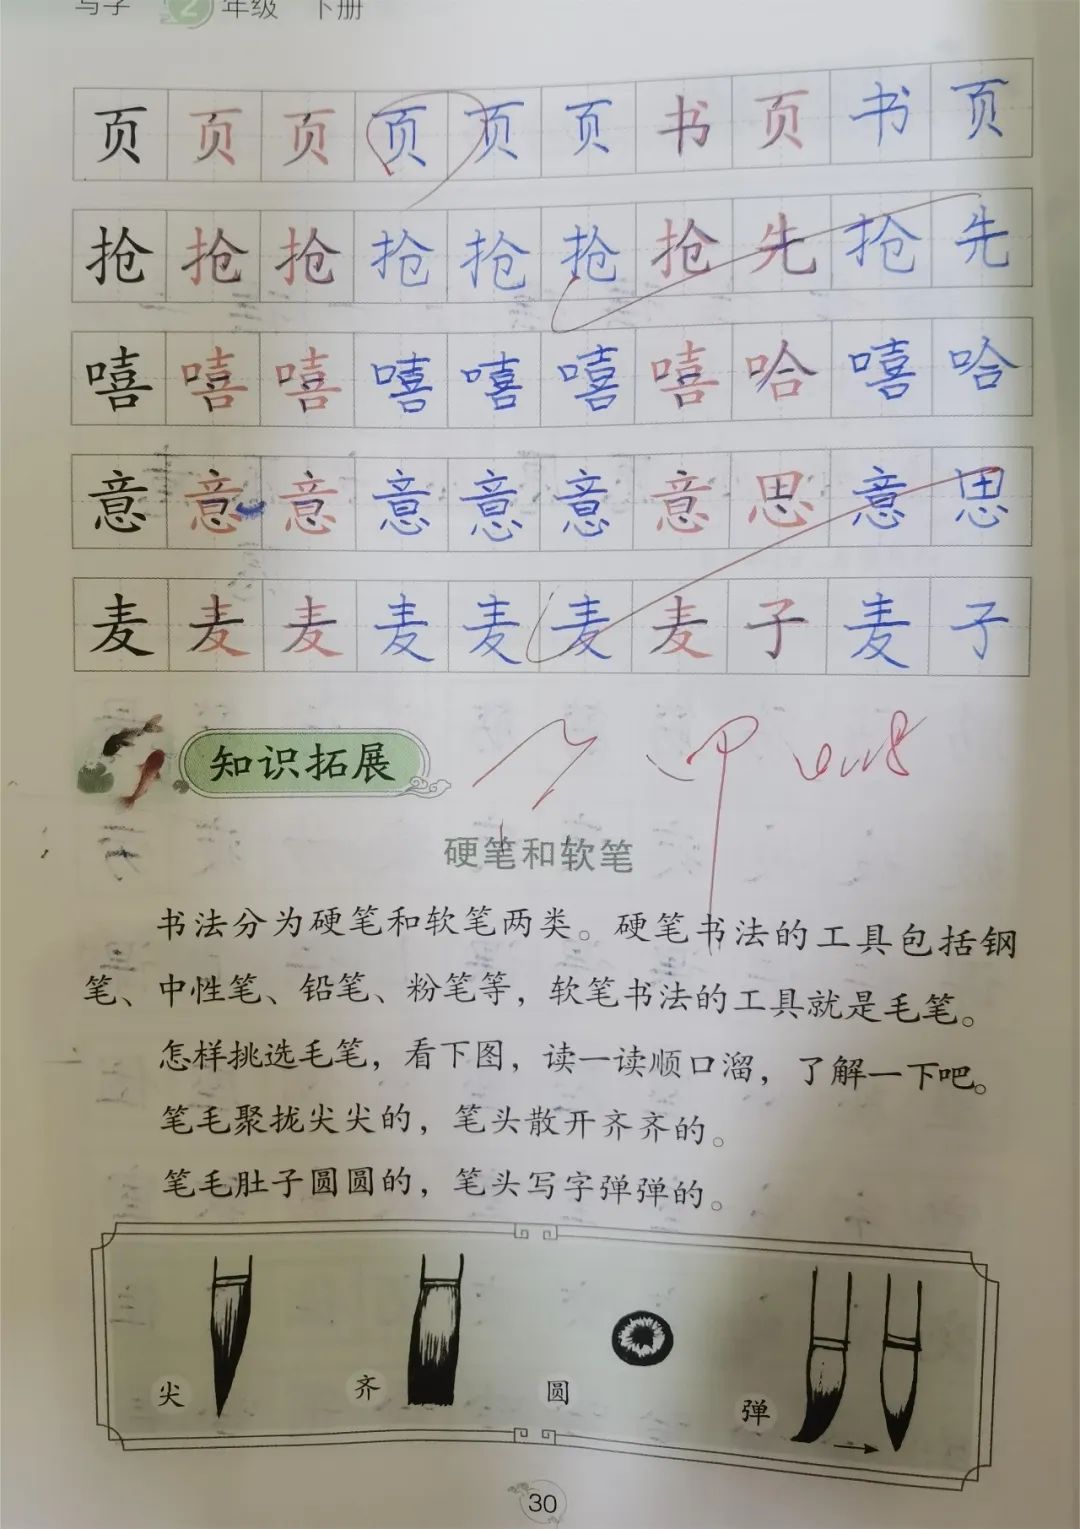 写字 2 年级 下册
页 页 页 页 页 页 书 页 书 页
抢 抢 抢 抢 抢 抢 抢 先 抢 先
嘻 嘻 嘻 嘻 嘻 嘻 嘻 哈 嘻 哈
意 意 意 意 意 意 意 思 意 思
麦 麦 麦 麦 麦 麦 麦 子 麦 子
知识拓展
硬笔和软笔
书法分为硬笔和软笔两类。硬笔书法的工具包括钢
笔、中性笔、铅笔、粉笔等，软笔书法的工具就是毛笔。
怎样挑选毛笔，看下图，读一读顺口溜，了解一下吧。
笔毛聚拢尖尖的，笔头散开齐齐的。
笔毛肚子圆圆的，笔头写字弹弹的。
尖 齐 圆 弹
30